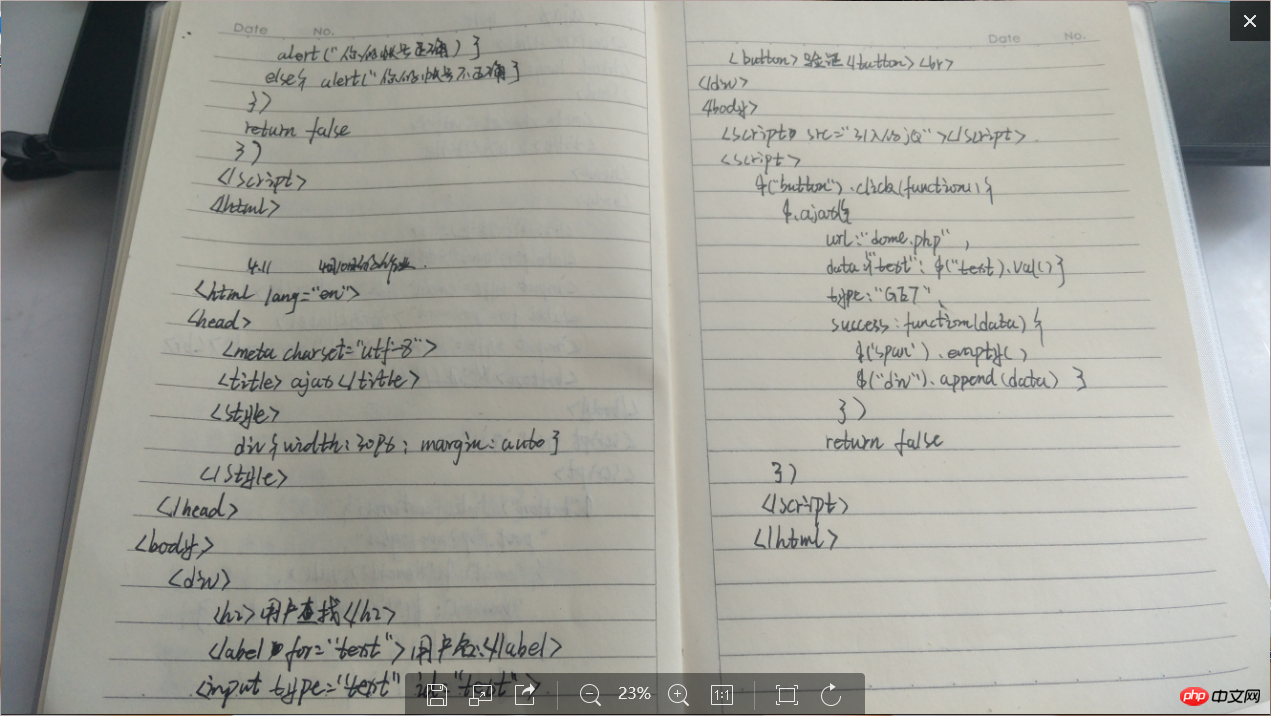 Date No.
alert("你的帐号正确) }
else{ alert("你的帐号不正确 }
})
return false
})
</script>
</html>
4.11 4月10日的作业.
<html lang="en">
<head>
<meta charset="utf-8">
<title> ajax </title>
<style>
div { width: 30%; margin: auto }
</style>
</head>
<body>
<div>
<h2> 用户查找</h2>
<label for="text">用户名:</label>
<input type="text" id="text">
Date No.
<button> 验证 </button> <br>
</div>
</body>
<script src="引入的jQ"></script>
<script>
$("button").click(function(){
$.ajax({
url:"dome.php",
data:{"text": $("text).val() }
type:"GET",
success: function(data) {
$('span').empty()
$("div").append(data) }
})
return false
})
</script>
</html>
23%
1:1
php 中文网